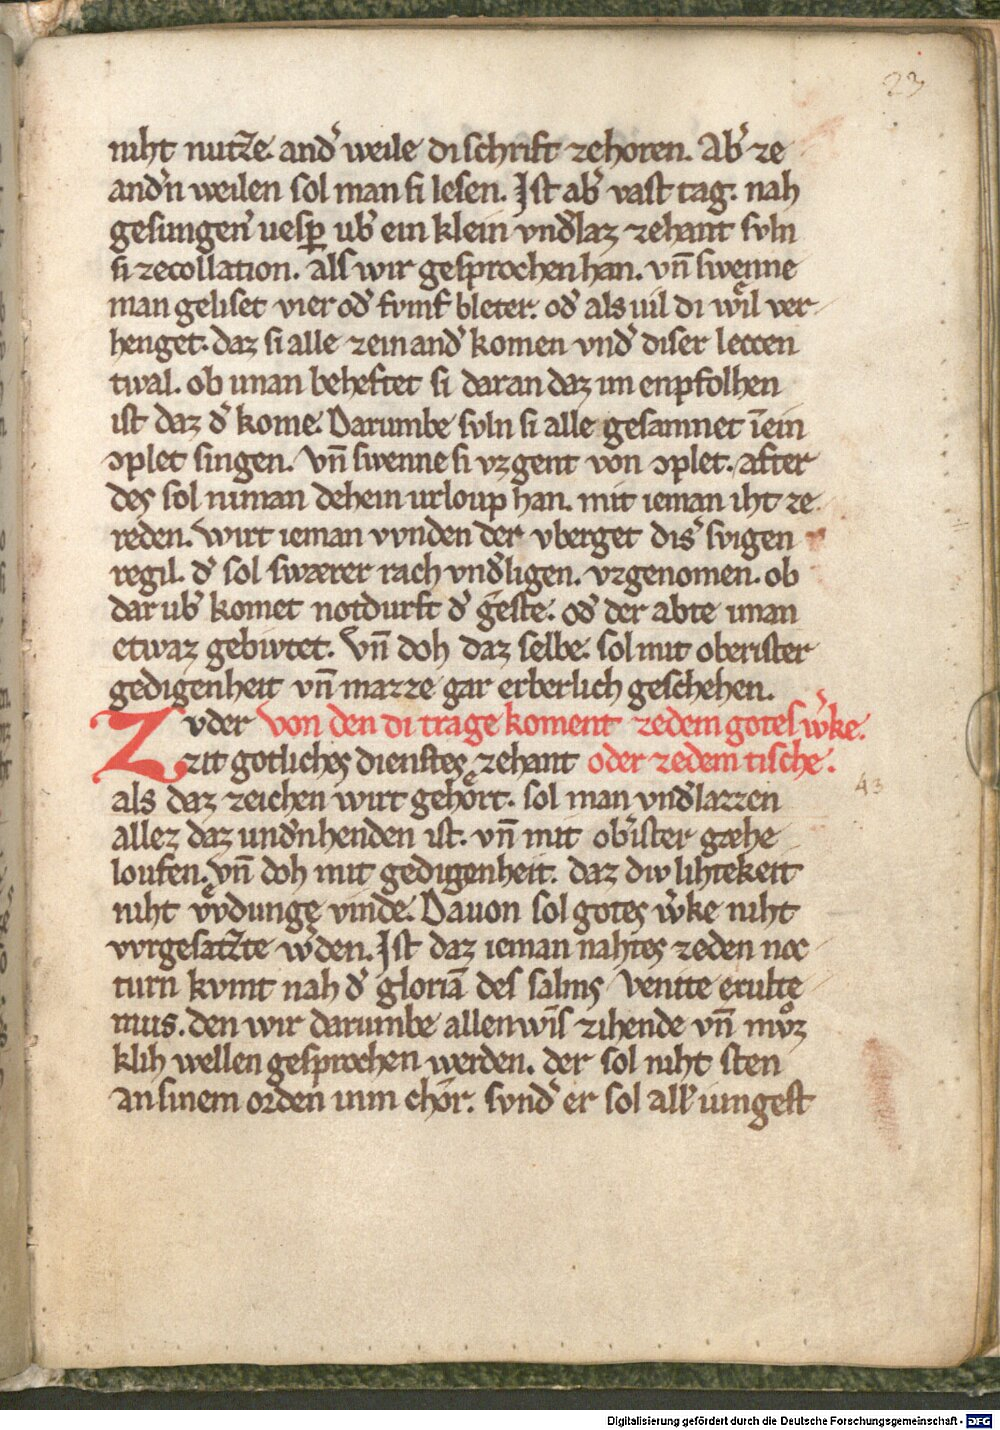 23
niht nutze. and͛ weile di schrift zehoren. Ab͛ ze
and͛n weilen sol man si lesen. Ist ab͛ vast tag. nah
gesungen͛ uesꝑ ub͛ ein klein vnd͛laz zehant svln
si zecollation. als wir gesprochen han. vn̄ swenne
man geliset vier od͛ fvmf bleter. od͛ als uil di wͤil ver
henget. daz si alle zeinand͛ komen vnd͛ diser leccen
twal. ob iman beheftet si daran daz im enpfolhen
ist daz d͛ kome. Darumbe svln si alle gesamnet īein
ꝯplet singen. Vn̄ swenne si vzgent von ꝯplet. after
des sol niman dehein urloup han. mit ieman iht ze
reden. Wirt ieman vvnden der vberget dis͛ svigen
regil. d͛ sol swærer rach vnd͛ligen. vzgenomen. ob
dar ub͛ komet notdurft d͛ geste. od͛ der abte iman
etwaz gebivtet. Vn̄ doh daz selbe. sol mit oberister
gedigenheit vn̄ mazze gar erberlich geschehen.
Zvder von den di trage koment zedem gotes w͛ke.
zit gotliches dienstes zehant oder zedem tische.
43
als daz zeichen wirt gehoͤrt. sol man vnd͛lazzen
allez daz und͛nhenden ist. vn̄ mit ob͛ister gæhe
loufen. vn̄ doh mit gedigenheit. daz div lihtekeit
niht vͤvdunge vinde. Davon sol gotes w͛ke niht
vvrgesatzte w͛den. Ist daz ieman nahtes zeden noc
turn kvmt nah d͛ gloriā des salms Venite exulte
mus. den wir darumbe allenwis zihende vn̄ mvͦz
klih wellen gesprochen werden. der sol niht sten
an sinem orden inm chor. svnd͛ er sol all͛ iungest
Digitalisierung gefördert durch die Deutsche Forschungsgemeinschaft - DFG